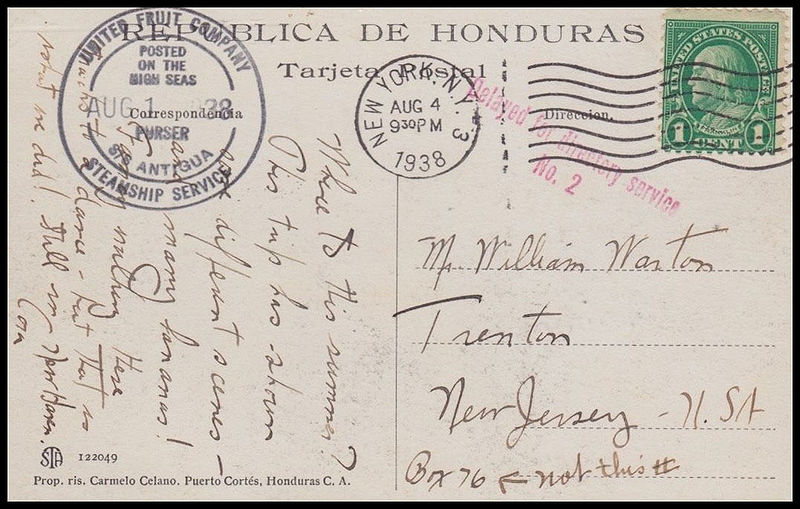 REPUBLICA DE HONDURAS
Tarjeta Postal
Correspondencia
Direccion.
UNITED FRUIT COMPANY
POSTED
ON THE
HIGH SEAS
AUG 1 1938
PURSER
S/S ANTIGUA
STEAMSHIP SERVICE
NEW YORK, N.Y. 3
AUG 4
930PM
1938
Delayed for directory service
No. 2
UNITED STATES POSTAGE
FRANKLIN
1 CENT 1
Where to this summer?
This trip has shown
different scenes -
many bananas!
here
dance - but that is
what we did! Still my New Haven.
Cora
Mr. William Warton
Trenton
New Jersey - U.S.A
Box 76 ← not this #
STA 122049
Prop. ris. Carmelo Celano. Puerto Cortés, Honduras C. A.